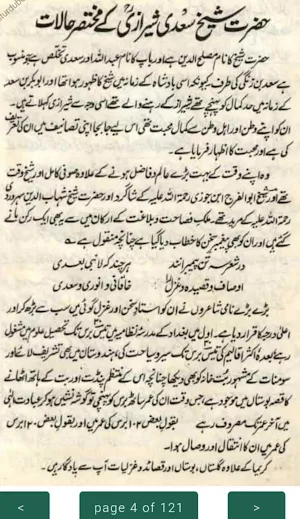 حضرت شیخ سعدی شیرازیؒ کے مختصر حالات
حضرت شیخ کا نام مصلح الدین ہے اور باپ کا نام عبداللہ اور سعدی تخلص ہے جو منسوب
ہے سعد بن زنگی کی طرف کیونکہ اسی بادشاہ کے زمانہ میں شیخ کا ظہور ہوا تھا اور ابوبکر بن سعد
کے زمانہ میں حد کمال کو پہنچے تھے شیراز کے رہنے والے تھے اسی وجہ سے شیرازی کہلاتے ہیں۔
ان کو اپنے وطن اور اہل وطن سے کمال محبت تھی اس لیے جا بجا اپنی تصانیف میں ان کی تعریف
کی ہے اور محبت کا اظہار فرمایا ہے۔
وہ اپنے وقت کے بہت بڑے عالم و فاضل ہونے کے علاوہ صوفی کامل اور شیخ وقت
تھے اور شیخ ابوالفرج ابن جوزی رحمۃ اللہ علیہ کے شاگرد اور حضرت شیخ شہاب الدین سہروردی
رحمۃ اللہ علیہ کے مرید تھے۔ ملک فصاحت و بلاغت کے ارکان میں سے یہ بھی ایک رکن مانے
گئے ہیں اور ان کو بھی پیغمبر سخن کا خطاب دیا گیا ہے چنانچہ منقول ہے
در شعر سہ تن پیمبرانند
ہر چند کہ لا نبی بعدی
اوصاف و قصیدہ و غزل را
خاقانی و انوری و سعدی
بڑے بڑے نامی شاعروں نے ان کو استاد سخن اور غزل گوئی میں سب سے بڑھ کر اور
اعلیٰ درجہ کا قرار دیا ہے۔ اول میں بغداد کے مدرسہ نظامیہ میں تیس برس تک تحصیل علوم میں مشغول
رہے بعدہٗ اکثر اقالیم کی تیس برس تک سیر و سیاحت کی، ہندوستان میں بھی تشریف لائے اور
سومنات کے مشہور بت خانہ کو بھی دیکھا چنانچہ اس کے منتظم پنڈت اور بت کے ہاتھ اٹھانے
کا قصہ بوستان میں موجود ہے، جس وقت ان کی عمر ساٹھ برس کو پہنچی تو گوشہ نشین ہو کر عبادت الٰہی
میں آخر عمر تک مصروف رہے بقول بعض ۱۰۲ برس کی عمر میں اور بقول بعض ۱۲۰ برس
کی عمر میں ان کا انتقال اور وصال ہوا۔
کریما کے علاوہ گلستاں، بوستاں اور قصائد و غزلیات آپ سے یادگار ہیں۔
<
page 4 of 121
>